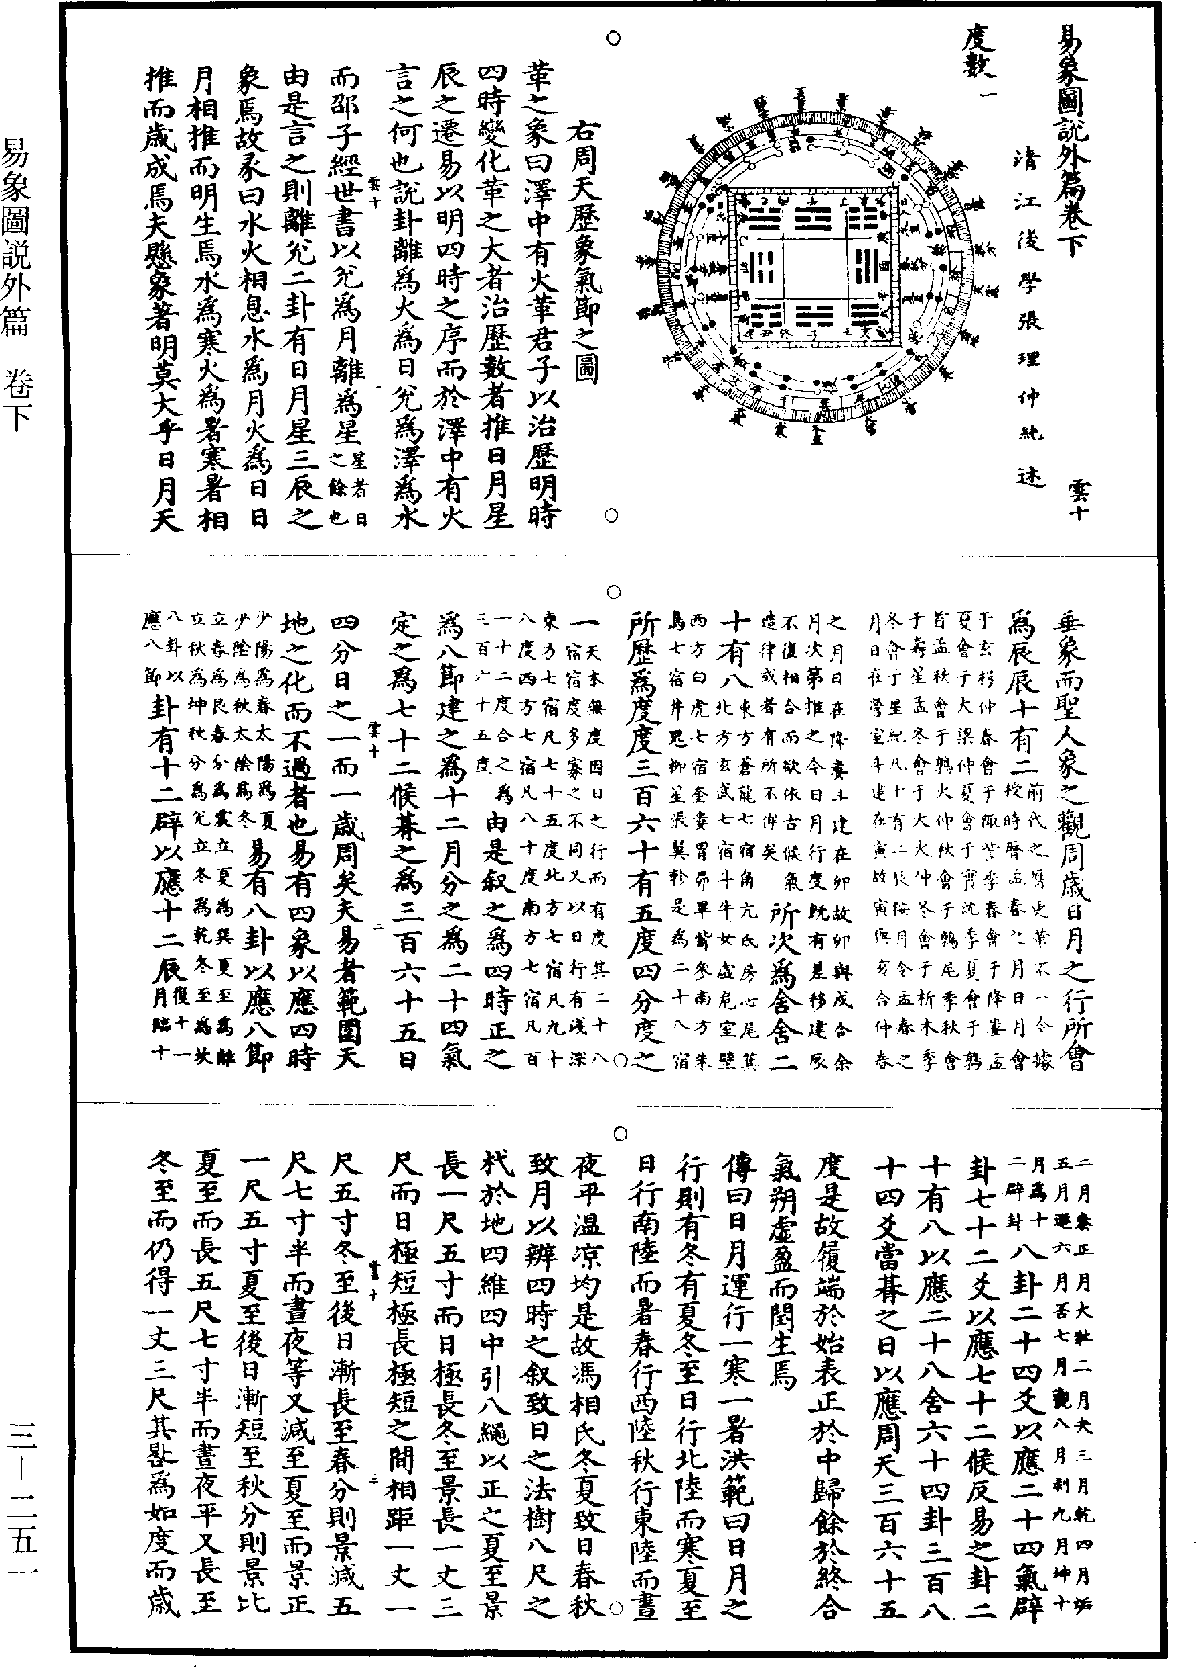 易象圖說外篇卷下 雲十
清江後學張理仲純述
度數一
右周天歷象氣節之圖
革之象曰澤中有火革君子以治歷明時
四時變化革之大者治歷數者推日月星
辰之遷易以明四時之序而於澤中有火
言之何也說卦離為火為日兌為澤為水
雲十
而邵子經世書以兌為月離為星星者日之餘也
由是言之則離兌二卦有日月星三辰之
象焉故彖曰水火相息水為月火為日日
月相推而明生焉水為寒火為暑寒暑相
推而歲成焉夫懸象著明莫大乎日月天
垂象而聖人象之觀周歲日月之行所會
為辰辰十有二前代之曆史策不一今據授時曆孟春之月日月會
于玄枵仲春會于娵訾季春會于降婁孟
夏會于大梁仲夏會于實沈季夏會于鶉
首孟秋會于鶉火仲秋會于鶉尾季秋會
于壽星孟冬會于大火仲冬會于析木季
冬會于星紀凡十有二辰按月令孟春之
月日在營室斗建在寅故寅與亥合仲春
之月日在降婁斗建在卯故卯與戌合余
月次第推之今日月行度既有差移建辰
不復相合而欲依古候氣造律或者有所不侔矣所次為舍舍二
十有八東方蒼龍七宿角亢氐房心尾箕北方玄武七宿斗牛女虛危室壁
西方白虎七宿奎婁胃昴畢觜參南方朱
鳥七宿井鬼柳星張翼軫是為二十八宿
所歷為度度三百六十有五度四分度之
一天本無度因日之行而有度其二十八宿宿度多寡之不同又以日行有淺深
東方七宿凡七十五度北方七宿凡九十
八度西方七宿凡八十度南方七宿凡百
一十二度合之為三百六十五度由是叙之為四時正之
為八節建之為十二月分之為二十四氣
定之為七十二候朞之為三百六十五日
雲十 二
四分日之一而一歲周矣夫易者範圍天
地之化而不過者也易有四象以應四時
少陽為春太陽為夏少陰為秋太陰為冬易有八卦以應八節
立春為艮春分為震立夏為巽夏至為離
立秋為坤秋分為兌立冬為乾冬至為坎
八卦以應八節卦有十二辟以應十二辰復十一月臨十
二月泰正月大壯二月夬三月乾四月姤
五月遯六月否七月觀八月剝九月坤十
月為十二辟卦八卦二十四爻以應二十四氣辟
卦七十二爻以應七十二候反易之卦二
十有八以應二十八舍六十四卦三百八
十四爻當朞之日以應周天三百六十五
度是故履端於始表正於中歸餘於終合
氣朔虛盈而閏生焉
傳曰日月運行一寒一暑洪範曰日月之
行則有冬有夏冬至日行北陸而寒夏至
日行南陸而暑春行西陸秋行東陸而晝
夜平溫凉均是故馮相氏冬夏致日春秋
致月以辨四時之叙致日之法樹八尺之
杙於地四維四中引八繩以正之夏至景
長一尺五寸而日極長冬至景長一丈三
尺而日極短極長極短之間相距一丈一
雲十 三
尺五寸冬至後日漸長至春分則景減五
尺七寸半而晝夜等又減至夏至而景正
一尺五寸夏至後日漸短至秋分則景比
夏至而長五尺七寸半而晝夜平又長至
冬至而仍得一丈三尺其晷為如度而歲
易象圖說外篇 卷下
三－二五一